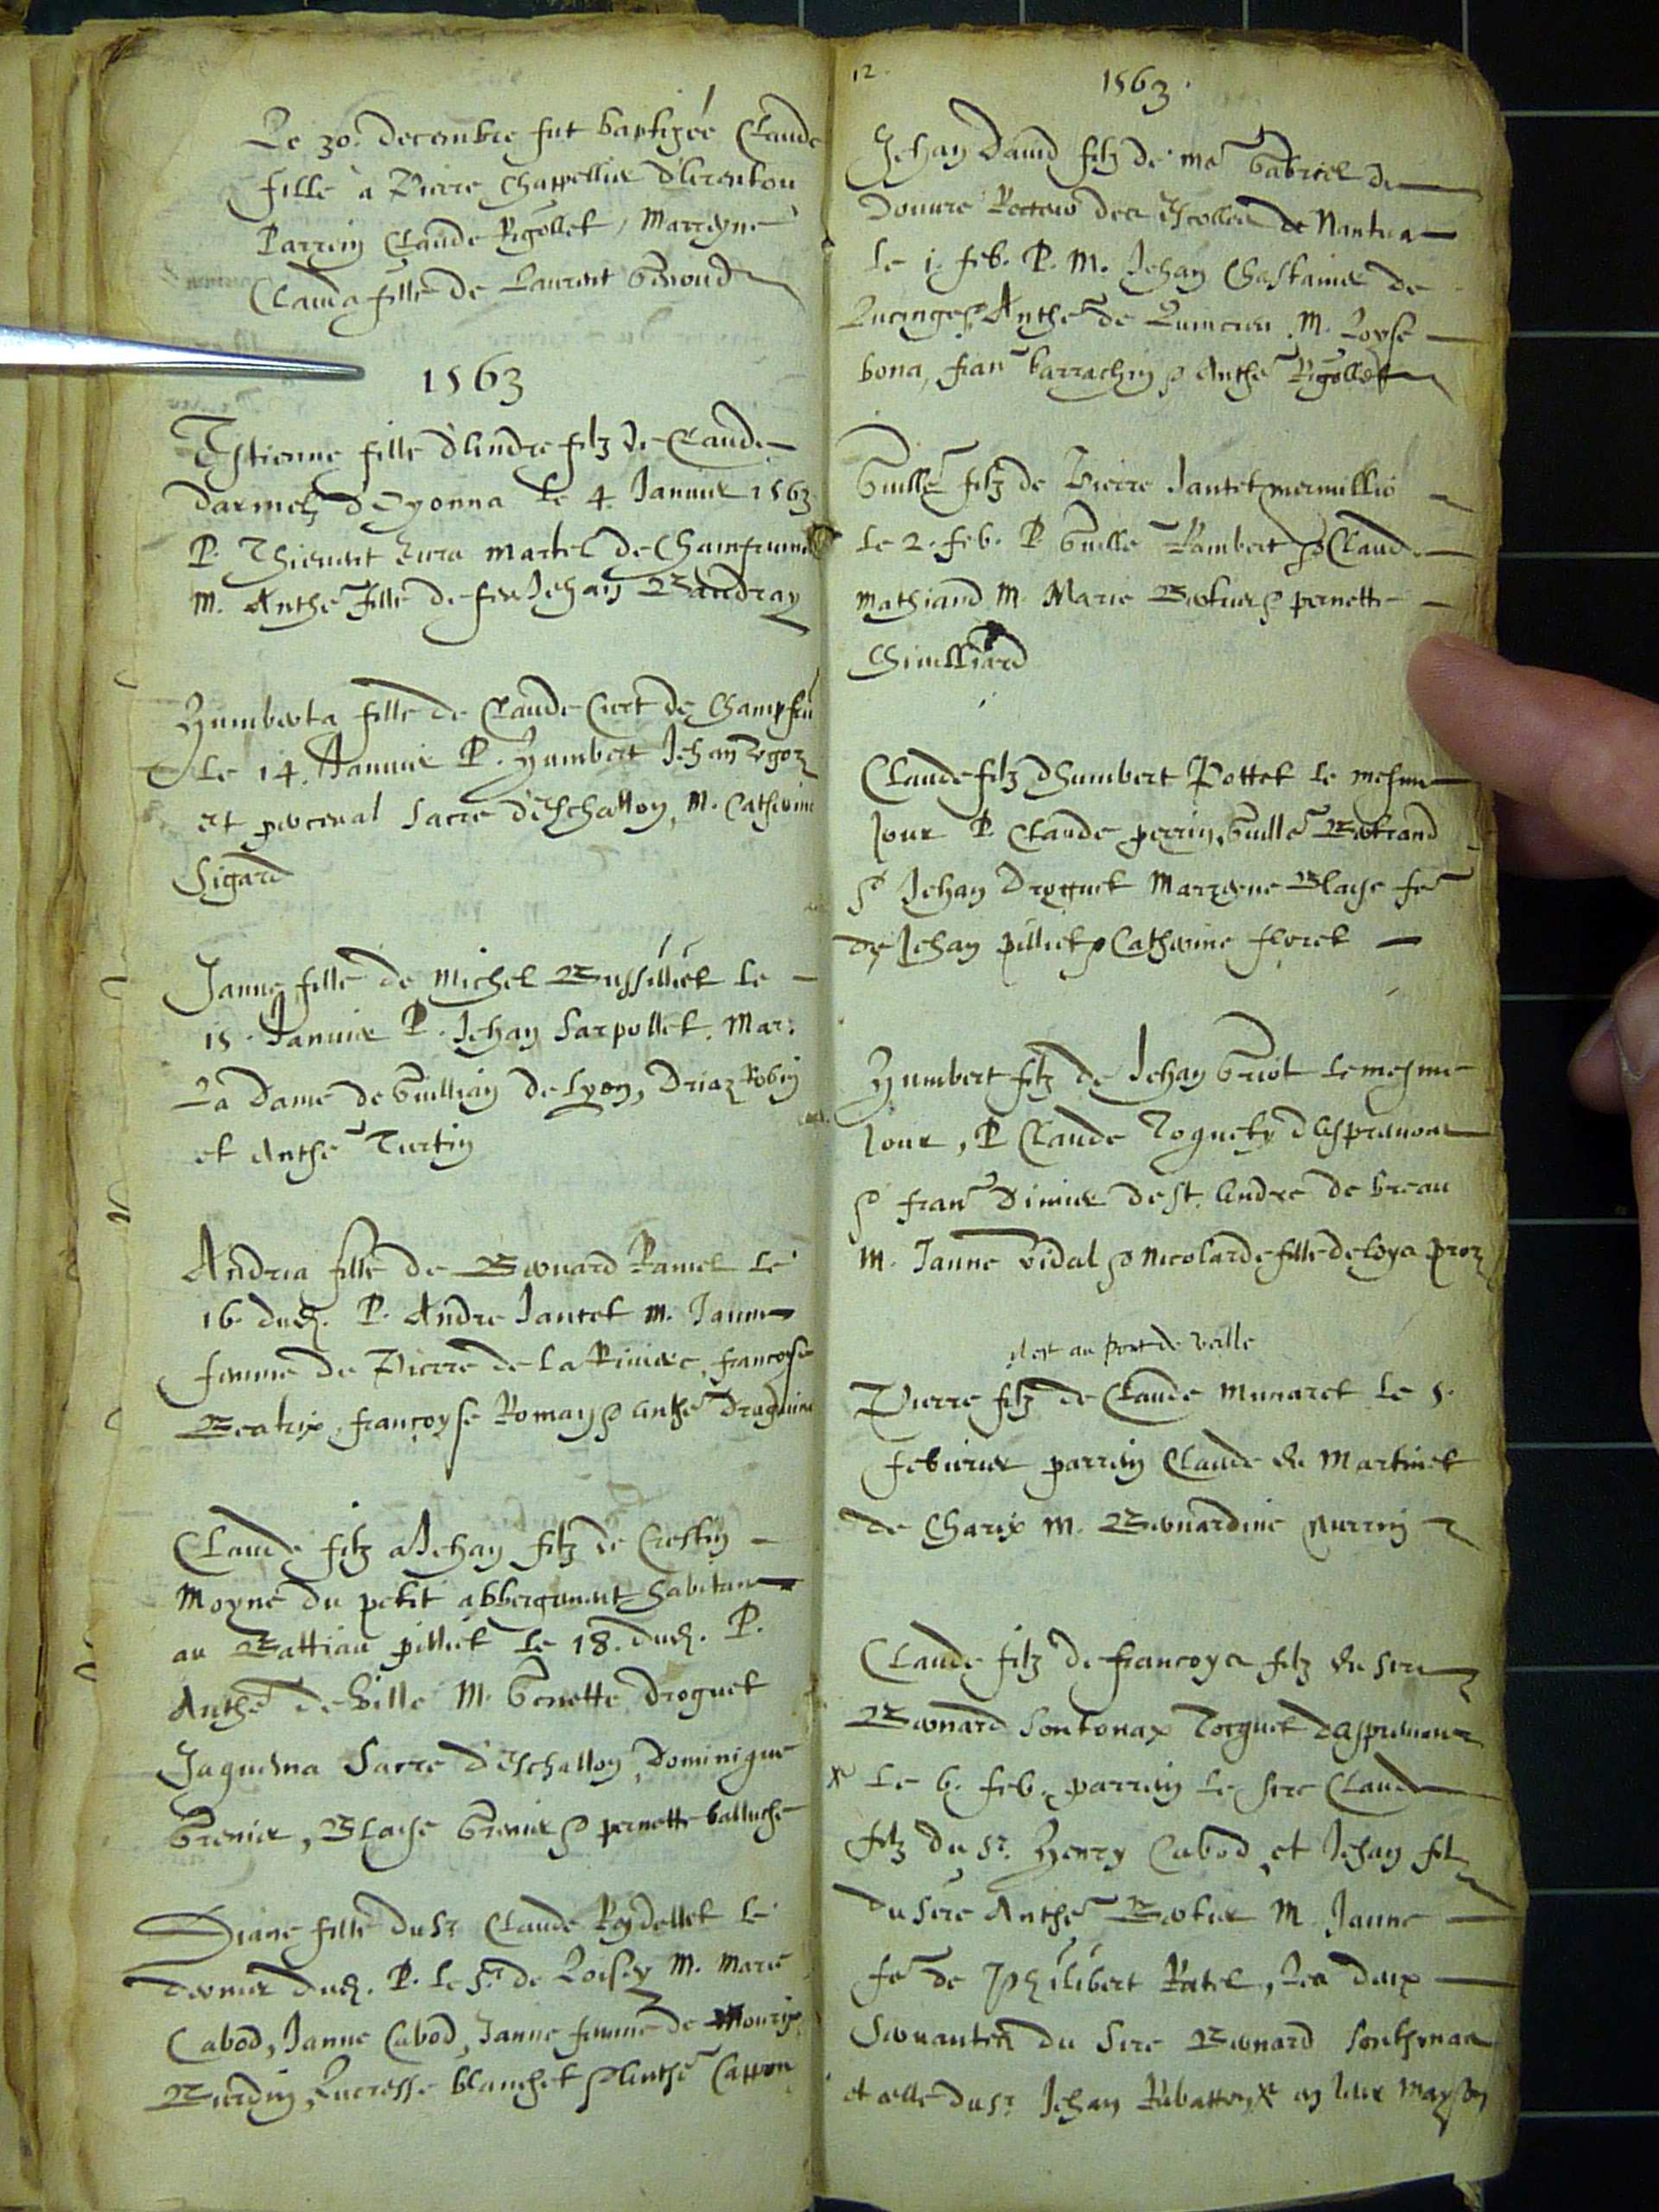 Le 30. decembre fut baptizée Claude
fille a Pierre Chappellier d'Arentou
Parrein Claude Rigollet, Marreyne
Clauda fille de Laurent Giroud
1563
Estienne fille d'Andre filz de Claude
darmetz d'Oyonna le 4. Januier 1563
P. Thieuent Jura martel de
M. Anthe fille de feu Jehan Baudray
Humberta fille de Claude Curt de Champfru
Le 14. Januier P. Humbert Jehan
et perceual Sarre d'Eschallon, M. Catherine
Sigard
Janne fille de Michel Bussilliet le
15. Januier P. Jehan Sarpollet. Mar:
La Dame de Guillian de Lyon, Driaz Robin
et Anthe Turtin
Andrea fille de Bernard Ramel le
16. dud. P. Andre Jantet M. Janne
femme de Pierre de la Riuiere, francoyse
Beatrix, francoyse Romans & Anthe
Claude filz a Jehan filz de Crestin
Moyne du petit abbergement habitant
au Battiau pilliet le 18. dud. P.
Anthe de Ville M. Genette Droguet
Jaquema Sarre d'Eschallon, Dominique
Grenier, Blaise Grenier & pernette balluche
Diane fille du Sr Claude Reydellet le
dernier dud. P. le Sr de Loisey M. Marie
Cabod, Janne Cabod, Janne femme de
Burdin, Lucresse blanchet & Anthe
12.
1563.
Jehan Dauid filz de me Gabriel de
Donure Recteur des Escolles de Nantua
le 1. feb. P. M. Jehan Chastanier de
Lucinges & Anthe de Quincieu M. Loyse
bona, fran barrachin & Anthe Rigollet
Guille filz de Pierre Jantet mermillio
le 2. feb. P. Guille Rambert & Claude
mathiand M. Marie Bertier & pernette
Chiuilliard
Claude filz d'humbert Pottet le mesme
Jour P. Claude perrin, Guille Bertrand
& Jehan Droguet Marreyne Blaise fe
de Jehan pilliet & Catherine floret
Humbert filz de Jehan Griot le mesme
Jour, P. Claude d'Aspremont
& fran Diniier de St. Andre de breau
M. Janne vidal & Nicolarde fille de Loys
il est au port de valle
Pierre filz de Claude Munaret le 5.
febvrier parrein Claude du Martinet
de Charix M. Bernardine
Claude filz de francoys filz du sire
Bernard Sonthonax d'Aspremont
x le 6. feb. parrein le sire Claude
filz du Sr. Henry Cabod et Jehan fil
du sire Anthe Bertier M. Janne
fe de Philibert Ratel, les deux
Seruantes du Sire Bernard Sonthonax
et celle du Sr Jehan Rubatton x en leur mayson